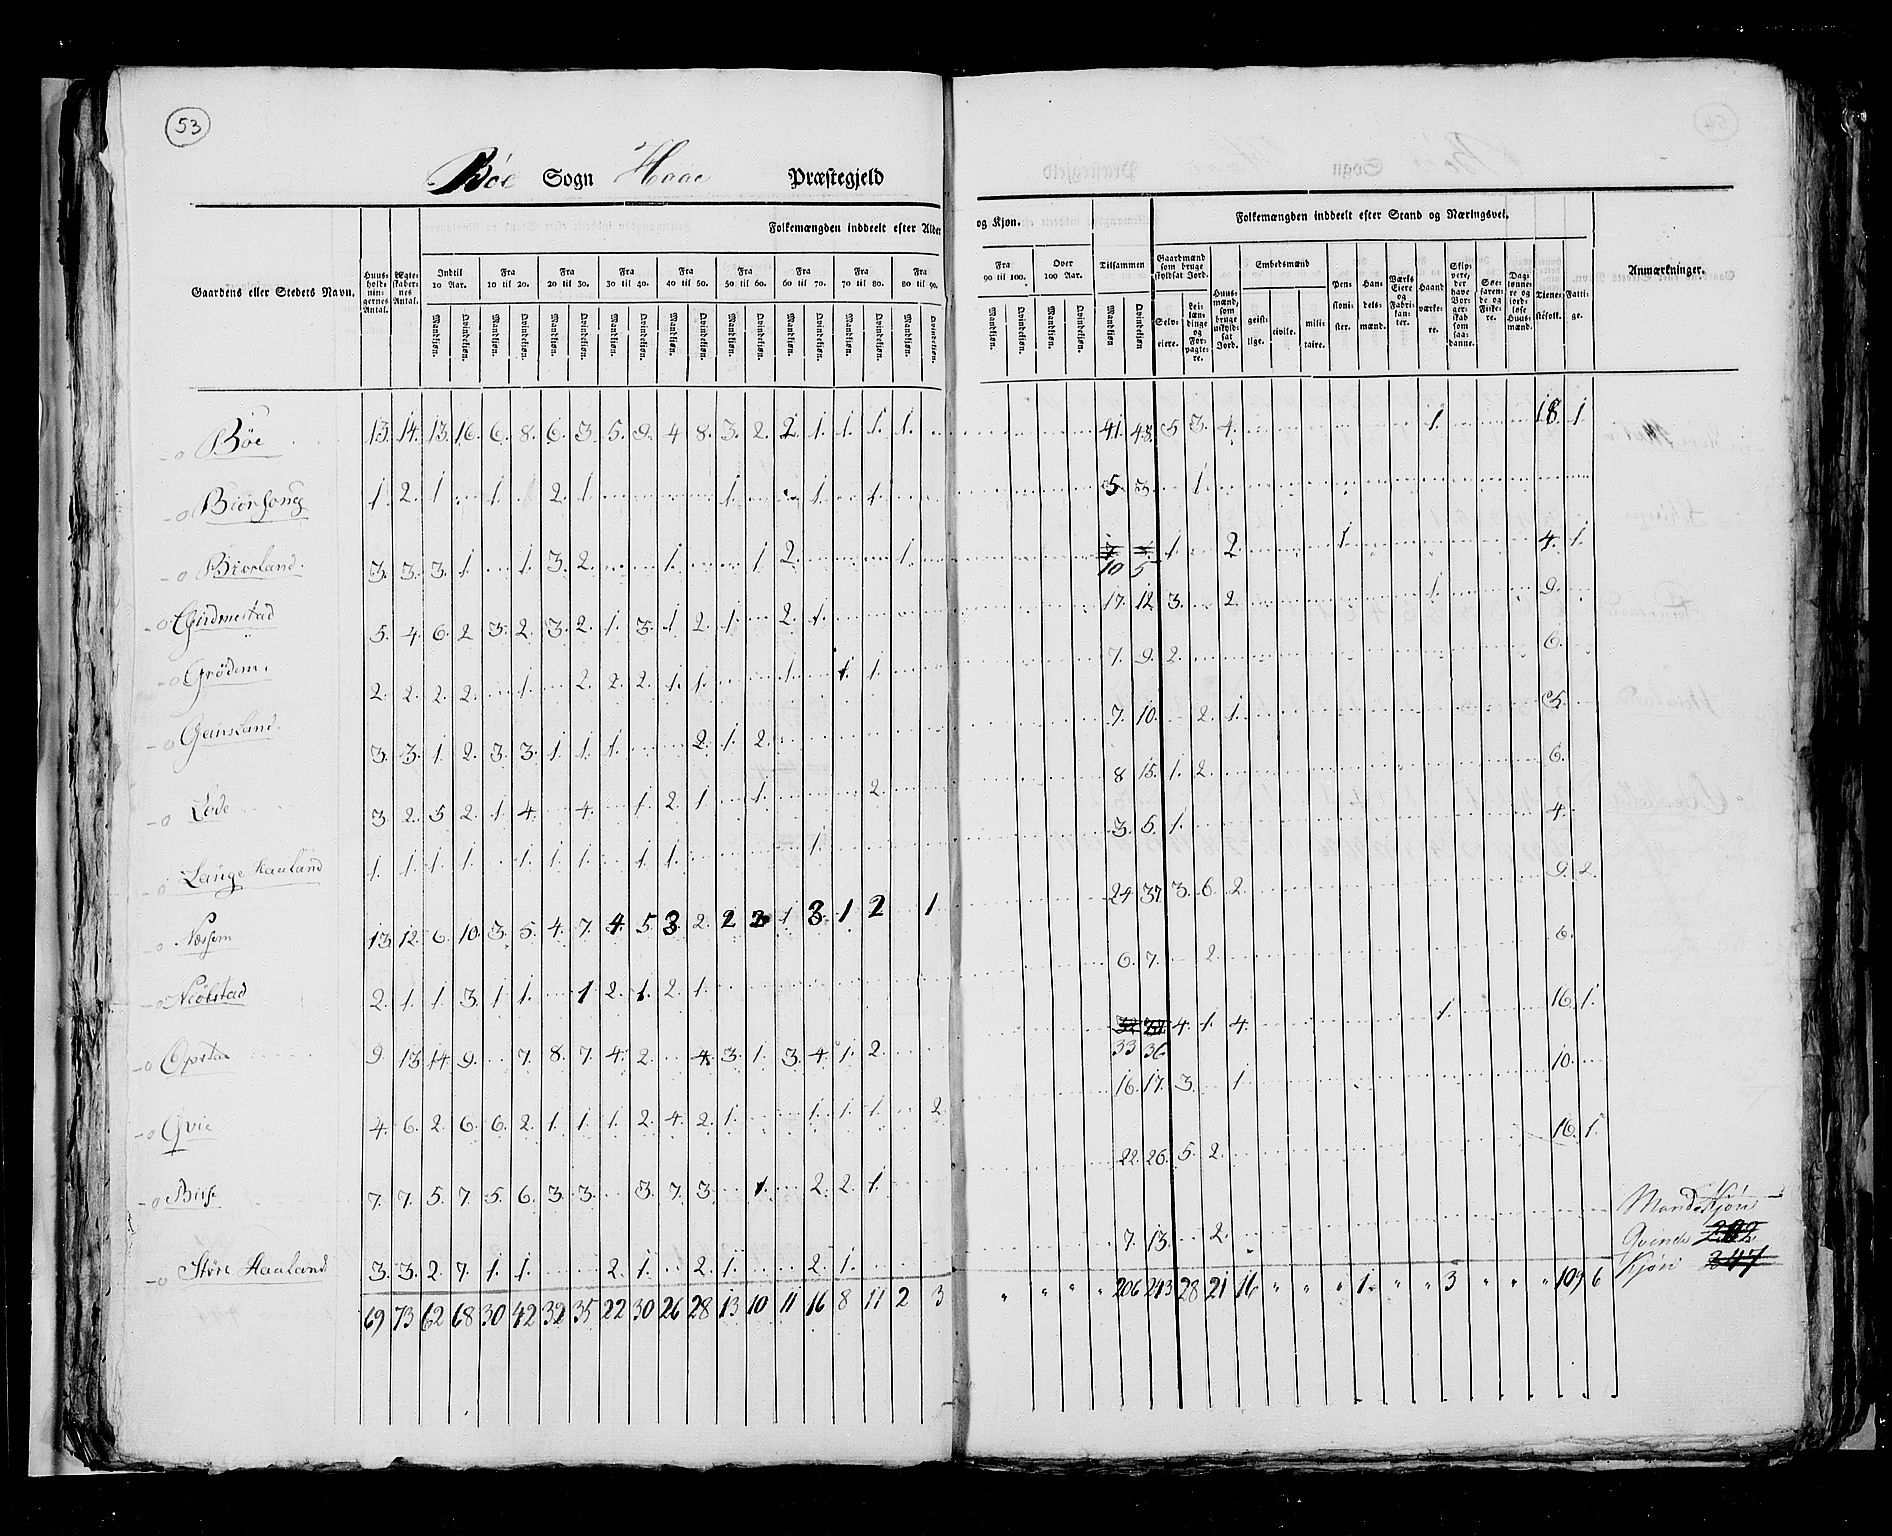 53
Bóe Sogn Haae Præstegjeld
Gaardens eller Stedets Navn.
Huusholdningernes Antal.
Ægteskabernes Antal.
Folkemængden inddeelt efter Alder og Kjøn.
Indtil 10 Aar. Fra 10 til 20. Fra 20 til 30. Fra 30 til 40. Fra 40 til 50. Fra 50 til 60. Fra 60 til 70. Fra 70 til 80. Fra 80 til 90. Fra 90 til 100. Over 100 Aar. Tilsammen
Mandkjøn. Qvindekjøn.
Folkemængden inddeelt efter Stand og Næringsvei.
Gaardmænd som bruge skyldsat Jord.
Selveiere.
Leilændinge og Forpagtere.
Huusmænd, som bruge uskyldsat Jord.
Embedsmænd
geistlige. civile. militaire.
Pensionister.
Handelsmænd.
Værkseiere og Fabrikanter.
Haandværkere.
Skippere, der have Borgerskab som saadanne.
Søefarende og Fiskere.
Daglønnere og jordløse Huusmænd.
Tienestefolk.
Fattige.
Anmærkninger.
Böe 13. 14. 13. 16. 6. 8. 6. 3. 5. 9. 4 8. 3. 2. 2. 1. 1. 1. 1. 41. 48. 5 3. 4. 1. 18. 1.
1. 2. 1 1. 2. 1. 1. 1. 1. 5. 3. 1.
Biorland. 3. 3. 3. 1. 1. 3. 2. 1. 1. 2. 1. 10 5 1. 2. 1. 4. 1.
5. 4. 6. 2 3. 2. 3. 2. 1. 3. 1. 2. 1. 2. 1. 17. 12 3. 2. 1. 9.
Grödem. 2. 2. 2. 2. 1. 2. 2. 2. 1. 1. 1. 1. 1. 7. 9. 2. 6.
3. 3. 1. 2. 3. 3. 1. 1. 1. 2. 1. 2. 7. 10. 2. 1. 5.
Lode 3. 2. 5. 2. 1. 4. 4. 1. 2. 1. 1. 2. 8 15. 1. 2. 6.
Lange Haaland 1. 1. 1. 1. 1. 1. 1. 1. 1. 1. 3. 5. 1. 4.
13. 12. 6. 10. 3. 5. 4. 7. 4. 5. 3. 2. 2 1. 3. 1 2 1 24 37 3. 6. 2. 9. 2.
Niölstad 2. 1. 1. 3. 1. 1. 1 2. 1. 2. 1. 6. 7. 2. 6.
9. 13. 14. 9. 7. 8. 7. 4. 2. 4. 3. 1. 3. 4. 1. 2. 33 36 4. 1. 4. 1. 16. 1.
Qvie 4. 6. 2. 6. 6. 2. 1. 1. 1. 2. 4. 2. 1. 1. 1. 1. 2. 16. 17. 3. 1. 10.
7. 7. 5. 7. 5. 6. 3. 3. 3. 7. 3. 1. 2. 2. 1. 22. 26. 5. 2. 16. 1.
Störe Haaland 3. 3. 2. 7. 1. 1. 2. 1. 2. 1. 2. 1. 7. 13. 2.
69 73 62 68 30 42 32 35 22 30 26 28 13 10 11 16 8 11 2 3 " " " " 206 243 28 21 16 " " " 1 " " 3 " " " 109 6
Mandkjön
Qvinde
Kjön 247